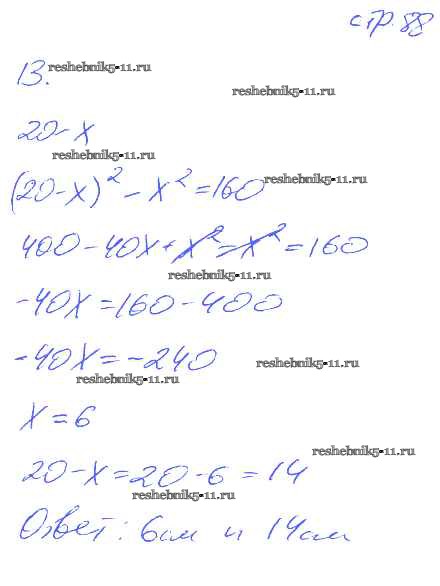 стр. 88
13.
reshebnik5-11.ru
reshebnik5-11.ru
20-x
reshebnik5-11.ru
(20-x)² - x² = 160
reshebnik5-11.ru
400 - 40x + x² = x² = 160
reshebnik5-11.ru
-40x = 160 - 400
-40x = -240
reshebnik5-11.ru
reshebnik5-11.ru
x = 6
reshebnik5-11.ru
20 - x = 20 - 6 = 14
reshebnik5-11.ru
Ответ: 6см и 14см